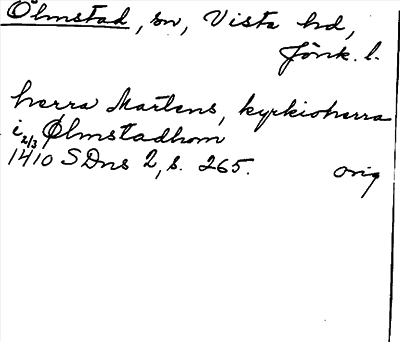 Ölmstad, sn, Vista hd,
Jönk. l.
herra Martens, kyrkioherra
i Ølmstadhom
1410 2/3 SDns 2, s. 265. orig